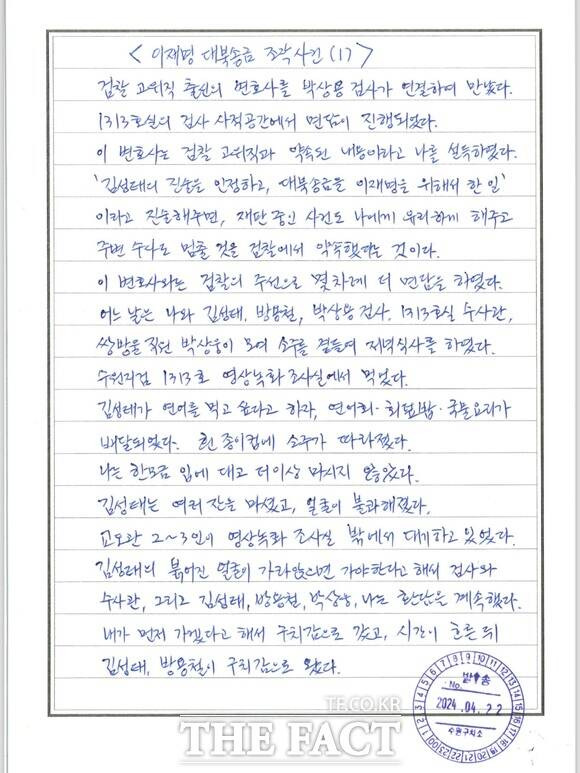 < 이재명 대북송금 조작사건 (1) >
검찰 고위직 출신의 변호사를 박상용 검사가 연결하여 만났다.
1313호실의 검사 사적공간에서 면담이 진행되었다.
이 변호사는 검찰 고위직과 약속된 내용이라고 나를 설득하였다.
'김성태의 진술을 인정하고, 대북송금을 이재명을 위해서 한 일'
이라고 진술해주면, 재판 중인 사건도 나에게 유리하게 해주고
주변 수사도 멈출 것을 검찰에서 약속했다는 것이다.
이 변호사와는 검찰의 주선으로 몇차례 더 면담을 하였다.
어느 날은 나와 김성태, 방용철, 박상용 검사, 1313호실 수사관,
쌍방울 직원 박상웅이 모여 소주를 곁들여 저녁식사를 하였다.
수원지검 1313호 영상녹화 조사실에서 먹었다.
김성태가 연어를 먹고 싶다고 하자, 연어회·회덮밥·국물요리가
배달되었다. 흰 종이컵에 소주가 따라졌다.
나는 한모금 입에 대고 더이상 마시지 않았다.
김성태는 여러 잔을 마셨고, 얼굴이 불콰해졌다.
교도관 2~3인이 영상녹화 조사실 밖에서 대기하고 있었다.
김성태의 붉어진 얼굴이 가라앉으면 가야한다고 해서 검사와
수사관, 그리고 김성태, 방용철, 박상웅, 나는 환담을 계속했다.
내가 먼저 가겠다고 해서 구치감으로 갔고, 시간이 흐른 뒤
김성태, 방용철이 구치감으로 왔다.
발송
No.
2024.04.22
수원구치소
TF.CO.KR
THE FACT